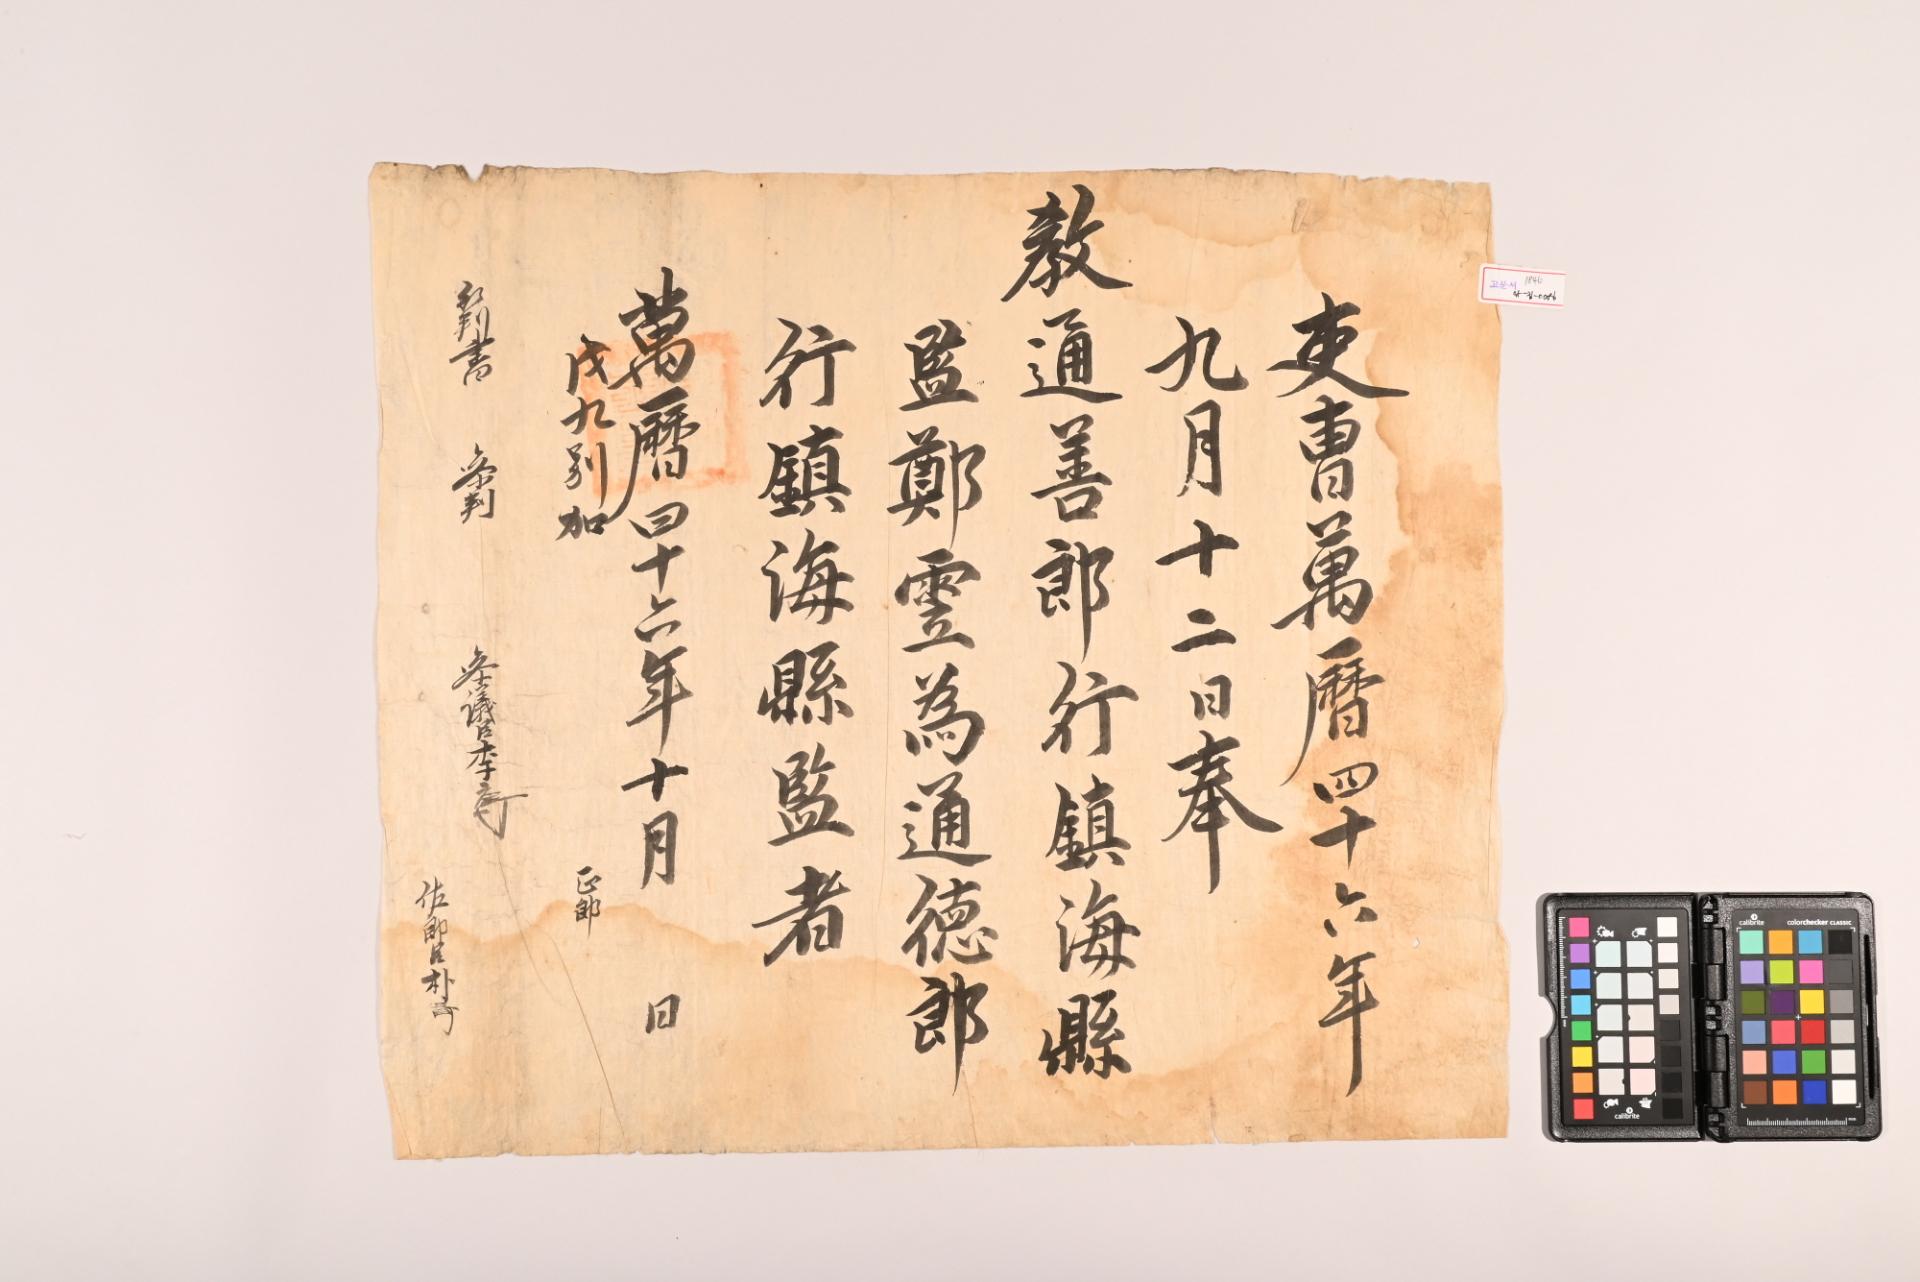 吏曹萬曆四十六年
九月十二日奉
教通善郎行鎮海縣
監鄭雲為通徳郎
行鎮海縣監者
萬曆四十六年十月 日
戊九別加
正郎
判書 叅判 叅議臣李
佐郎臣朴
고문서 1846
calibrite
colorchecker CLASSIC
calibrite